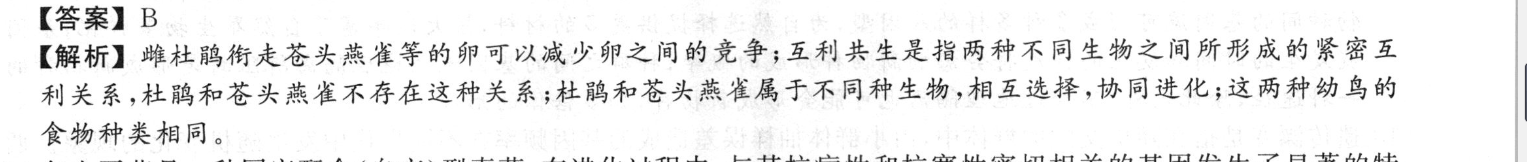 【答案】B
【解析】雌杜鹃衔走苍头燕雀等的卵可以减少卵之间的竞争;互利共生是指两种不同生物之间所形成的紧密互
利关系,杜鹃和苍头燕雀不存在这种关系;杜鹃和苍头燕雀属于不同种生物,相互选择,协同进化;这两种幼鸟的
食物种类相同。